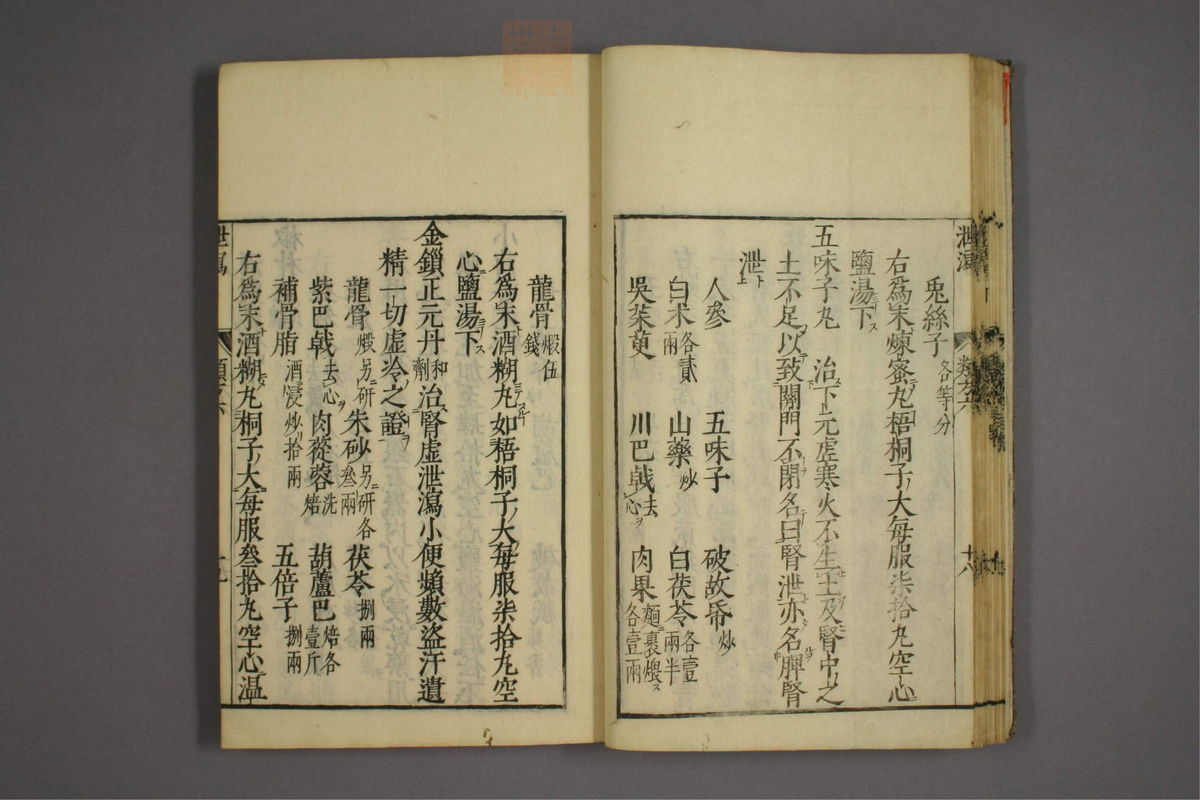 泄瀉 類六 十八
兎絲子各等分
右爲末煉蜜丸梧桐子大每服柒拾丸空心
鹽湯下
五味子丸 治下元虛寒火不生土及腎中之
土不足以致關門不閉名曰腎泄亦名脾腎
泄
人參 五味子 破故帋炒
白朮各貳兩 山藥炒 白茯苓各壹兩半
吳茱萸 川巴戟去心 肉果麵裹煨各壹兩
龍骨煆伍錢
右爲末酒糊丸如梧桐子大每服柒拾丸空
心鹽湯下
金鎖正元丹和劑治腎虛泄瀉小便頻數盜汗遺
精一切虛冷之證
龍骨煆另研 朱砂另研各叁兩 茯苓捌兩
紫巴戟去心 肉蓯蓉洗焙 葫蘆巴焙各壹斤
補骨脂酒浸炒拾兩 五倍子捌兩
右爲末酒糊丸桐子大每服叁拾丸空心溫
泄瀉 類六 十九